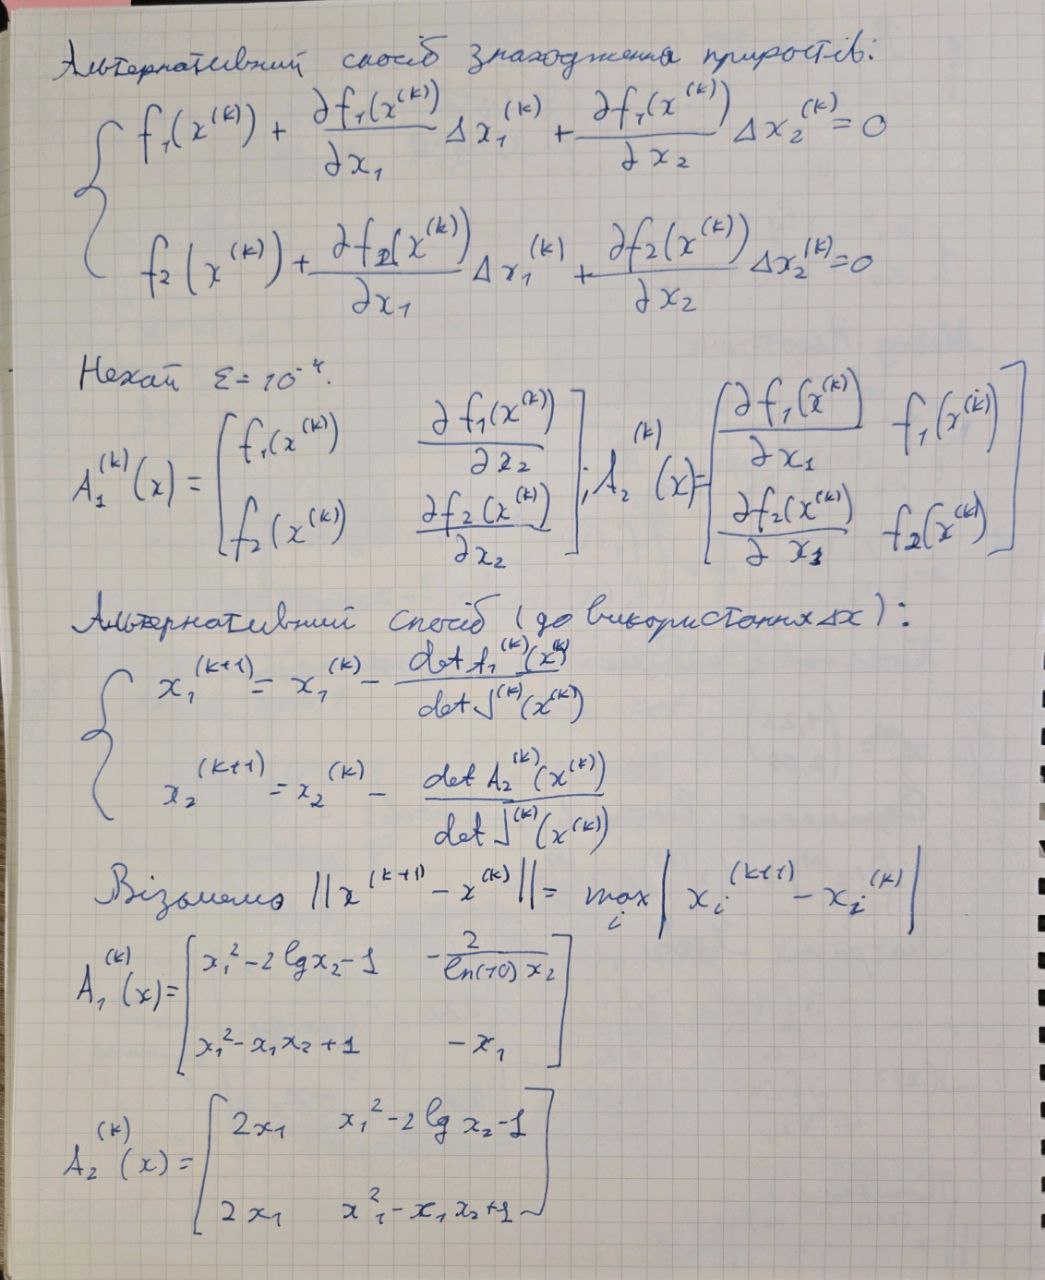 Альтернативний спосіб знаходження приростів:
f₁(x⁽ᵏ⁾) + ∂f₁(x⁽ᵏ⁾)/∂x₁ Δx₁⁽ᵏ⁾ + ∂f₁(x⁽ᵏ⁾)/∂x₂ Δx₂⁽ᵏ⁾ = 0
f₂(x⁽ᵏ⁾) + ∂f₂(x⁽ᵏ⁾)/∂x₁ Δx₁⁽ᵏ⁾ + ∂f₂(x⁽ᵏ⁾)/∂x₂ Δx₂⁽ᵏ⁾ = 0
Нехай ε = 10⁻⁴.
A₁⁽ᵏ⁾(x) = [f₁(x⁽ᵏ⁾) ∂f₁(x⁽ᵏ⁾)/∂x₂; f₂(x⁽ᵏ⁾) ∂f₂(x⁽ᵏ⁾)/∂x₂]; A₂⁽ᵏ⁾(x) = [∂f₁(x⁽ᵏ⁾)/∂x₁ f₁(x⁽ᵏ⁾); ∂f₂(x⁽ᵏ⁾)/∂x₁ f₂(x⁽ᵏ⁾)]
Альтернативний спосіб (до використання Δx):
x₁⁽ᵏ⁺¹⁾ = x₁⁽ᵏ⁾ − det A₁⁽ᵏ⁾(x⁽ᵏ⁾)/det J⁽ᵏ⁾(x⁽ᵏ⁾)
x₂⁽ᵏ⁺¹⁾ = x₂⁽ᵏ⁾ − det A₂⁽ᵏ⁾(x⁽ᵏ⁾)/det J⁽ᵏ⁾(x⁽ᵏ⁾)
Візьмемо ||x⁽ᵏ⁺¹⁾ − x⁽ᵏ⁾|| = max_i |x_i⁽ᵏ⁺¹⁾ − x_i⁽ᵏ⁾|
A₁⁽ᵏ⁾(x) = [x₁² − 2 lg x₂ − 1 −2/(ln(10) x₂); x₁² − x₁x₂ + 1 −x₁]
A₂⁽ᵏ⁾(x) = [2x₁ x₁² − 2 lg x₂ − 1; 2x₁ x₁² − x₁x₂ + 1]